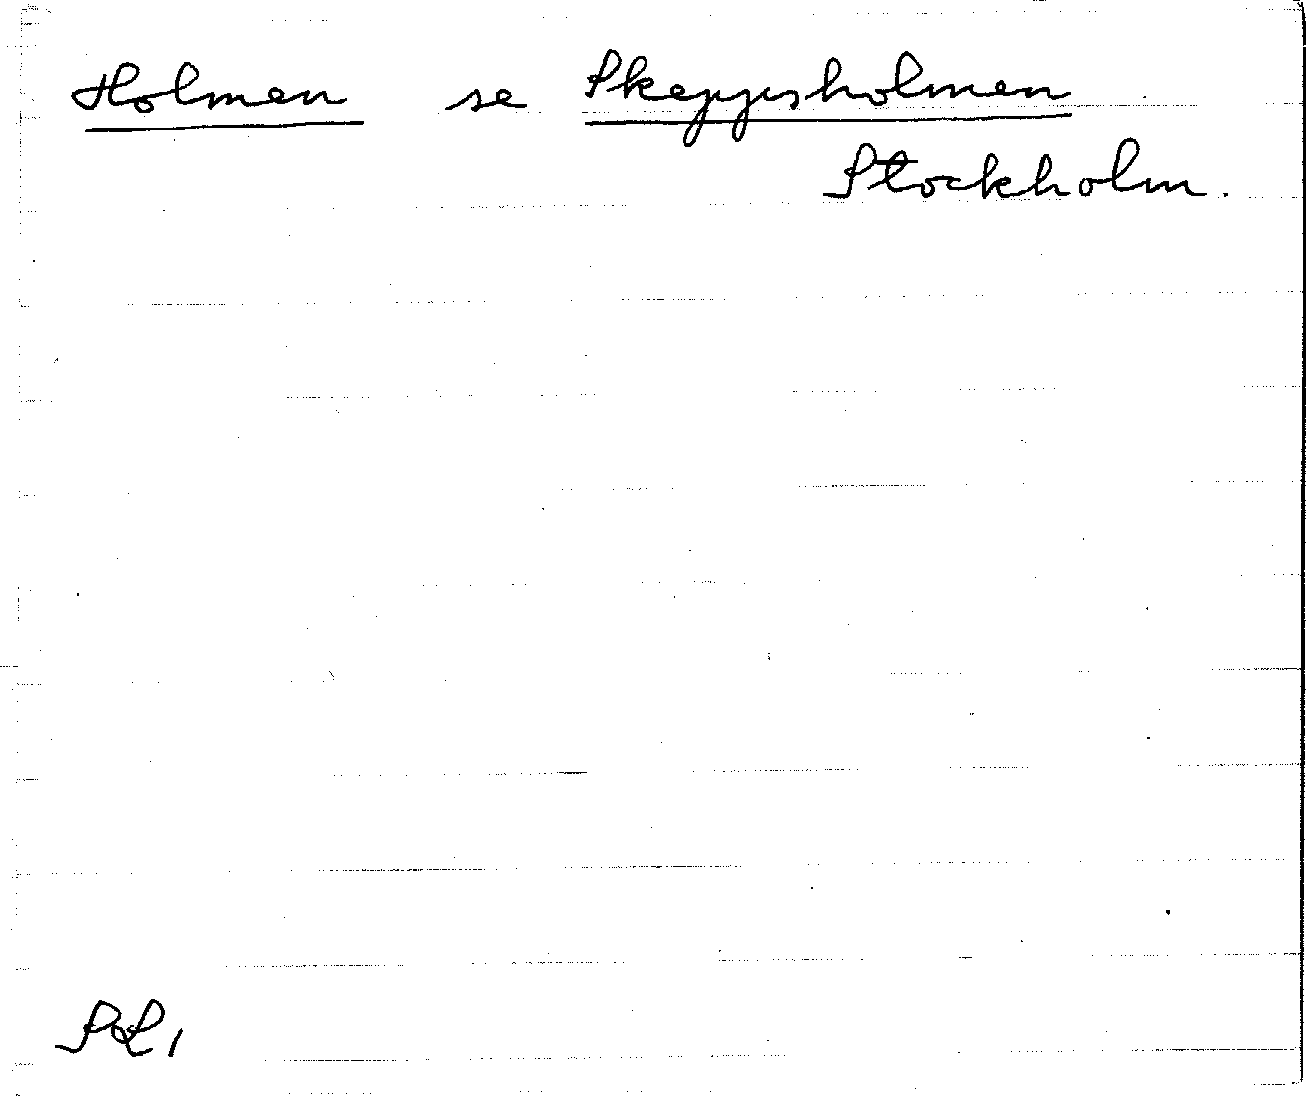 Holmen se Skeppsholmen
Stockholm.